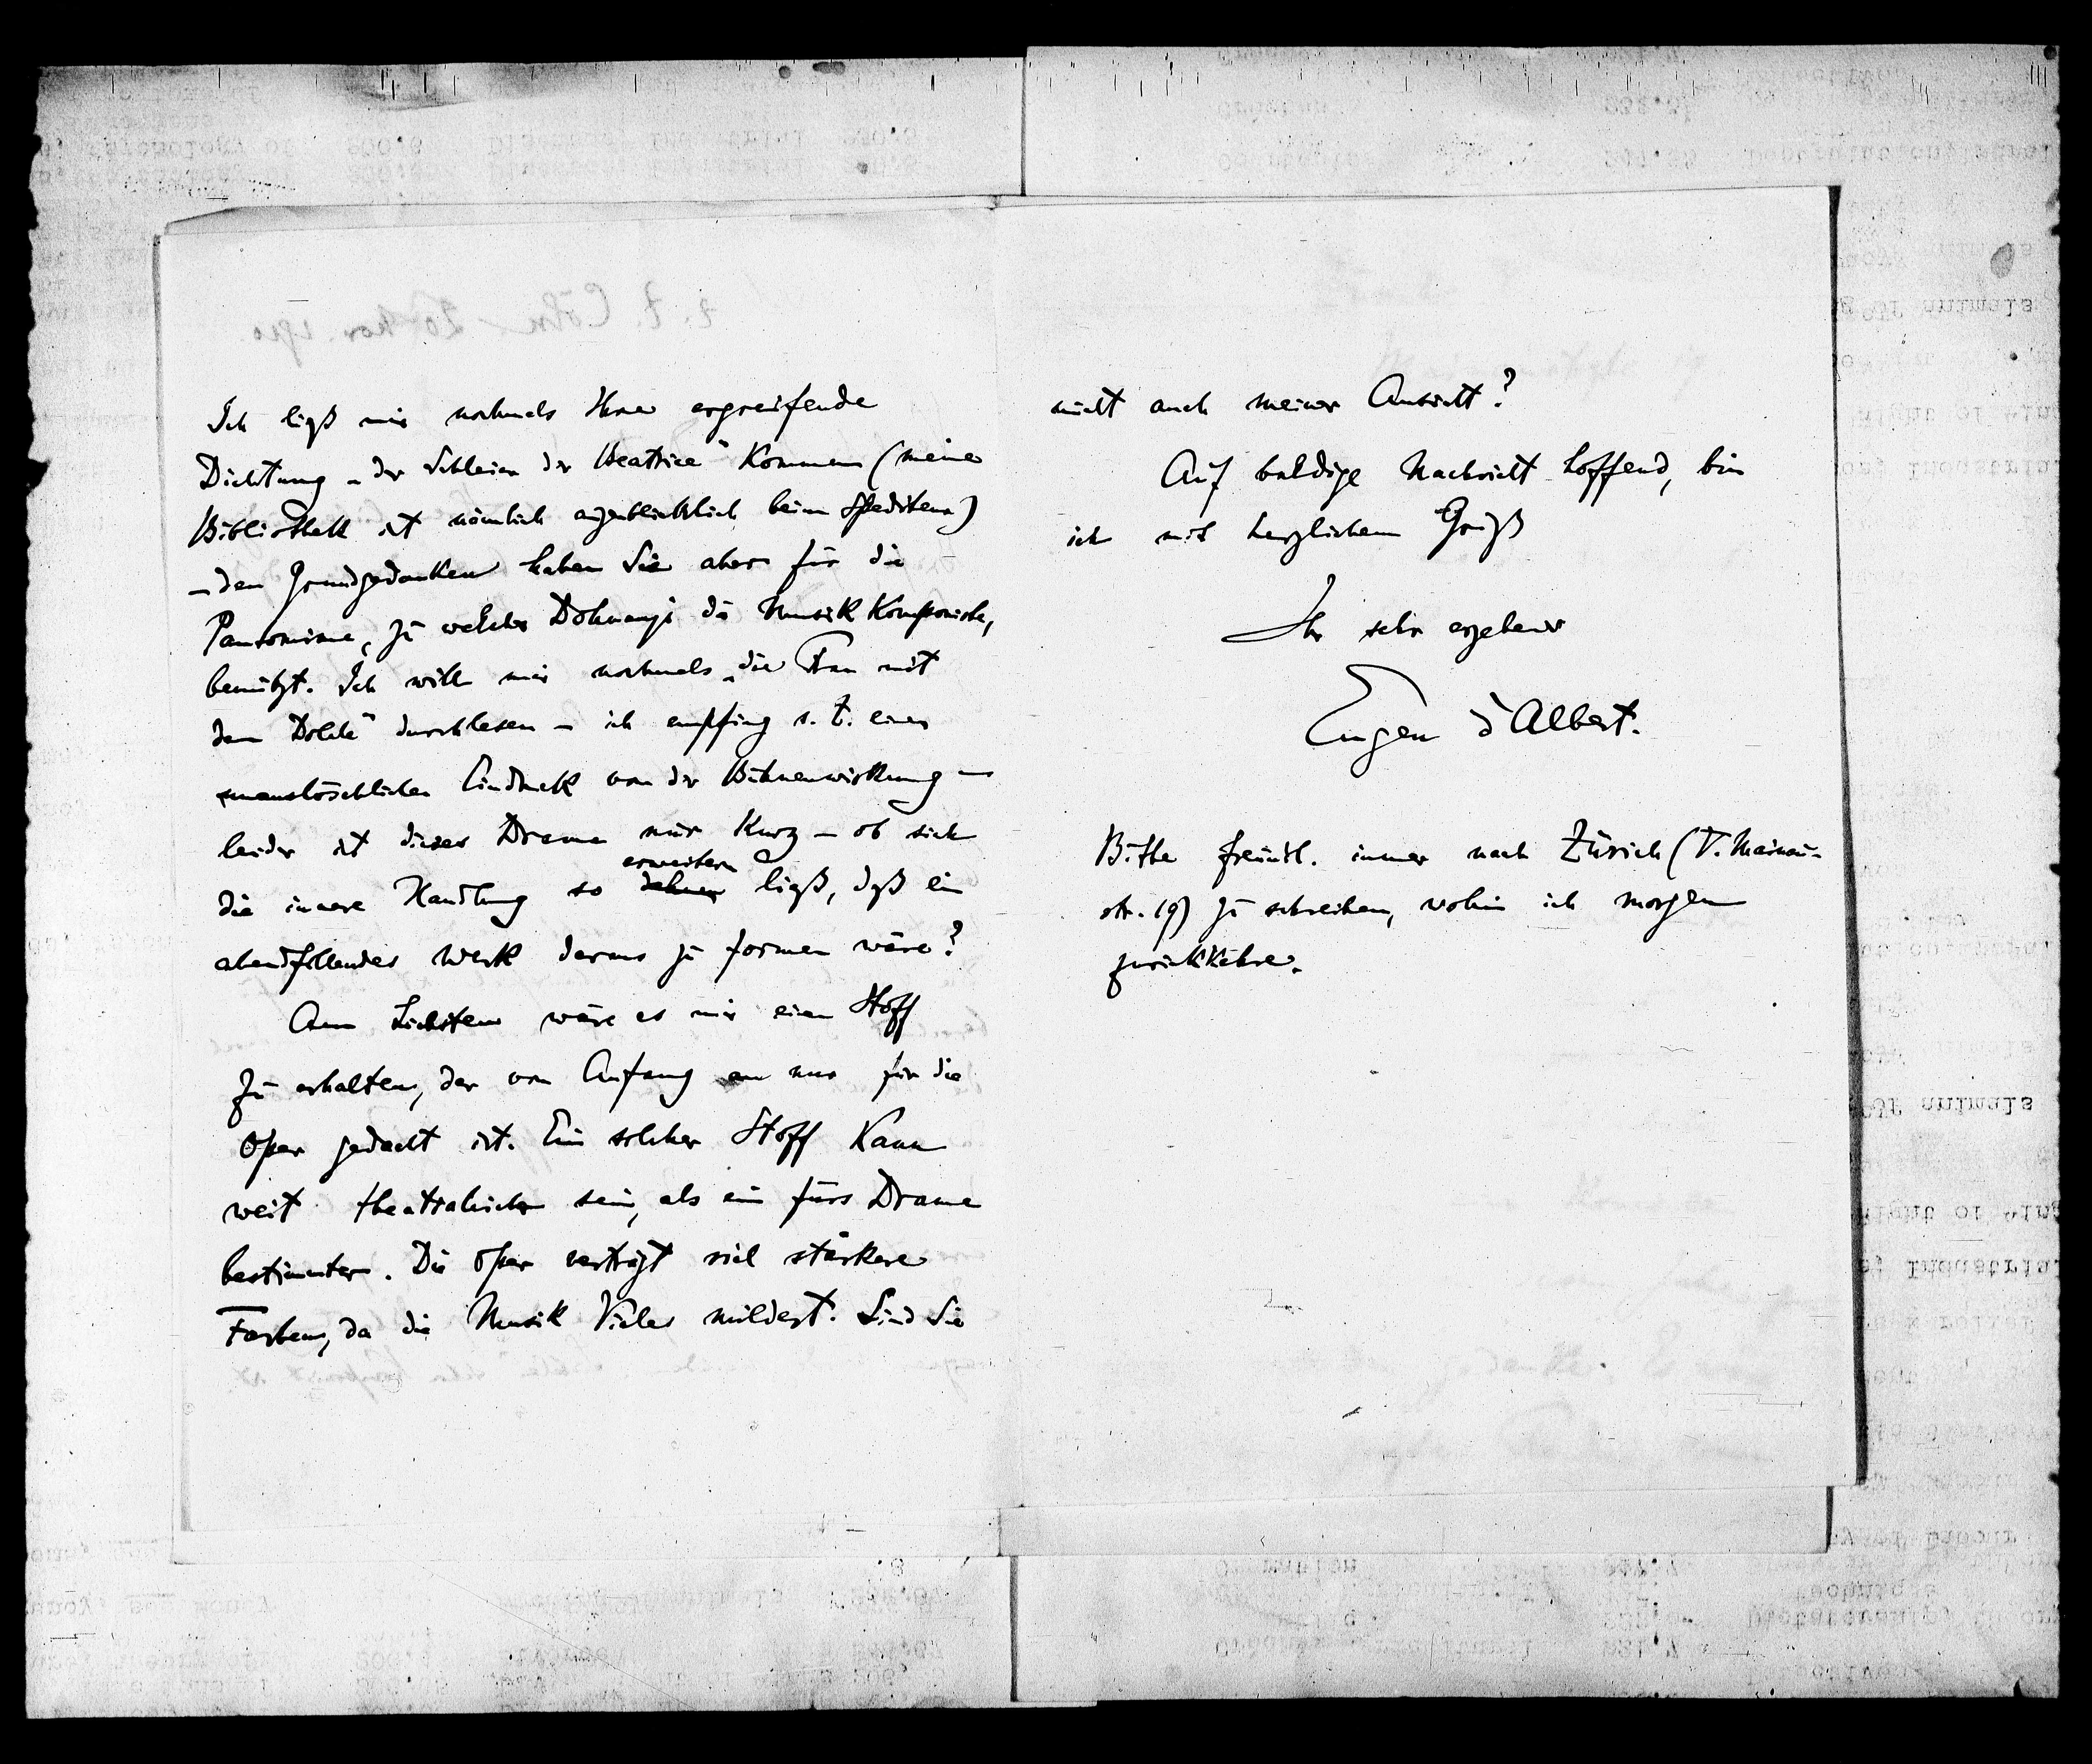 Ich ließ mir nochmals Ihre ergreifende
Dichtung „der Schleier der Beatrice" kommen (meine
Bibliothek ist nämlich augenblicklich beim Spediteur)
– den Grundgedanken haben Sie aber für die
Pantomime, zu welcher Dohnanyi die Musik komponirte,
benützt. Ich will mir nochmals „die Frau mit
dem Dolche" durchlesen – ich empfing s. Z. einen
unauslöschlichen Eindruck von der Bühnenwirkung –
leider ist dieses Drama nur kurz – ob sich
erweitern
die innere Handlung so dehnen ließ, daß ein
abendfüllendes Werk daraus zu formen wäre?
Am Liebsten wäre es mir einen Stoff
zu erhalten, der von Anfang an nur für die
Oper gedacht ist. Ein solcher Stoff kann
weit theatralischer sein, als ein fürs Drama
bestimmter. Die Oper verträgt viel stärkere
Farben, da die Musik Vieles mildert. Sind Sie
nicht auch meiner Ansicht?
Auf baldige Nachricht hoffend, bin
ich mit herzlichem Gruß
Ihr sehr ergebener
Eugen d'Albert.
Bitte freundl. immer nach Zürich (V. Mainau-
str. 19) zu schreiben, wohin ich morgen
zurückkehre.